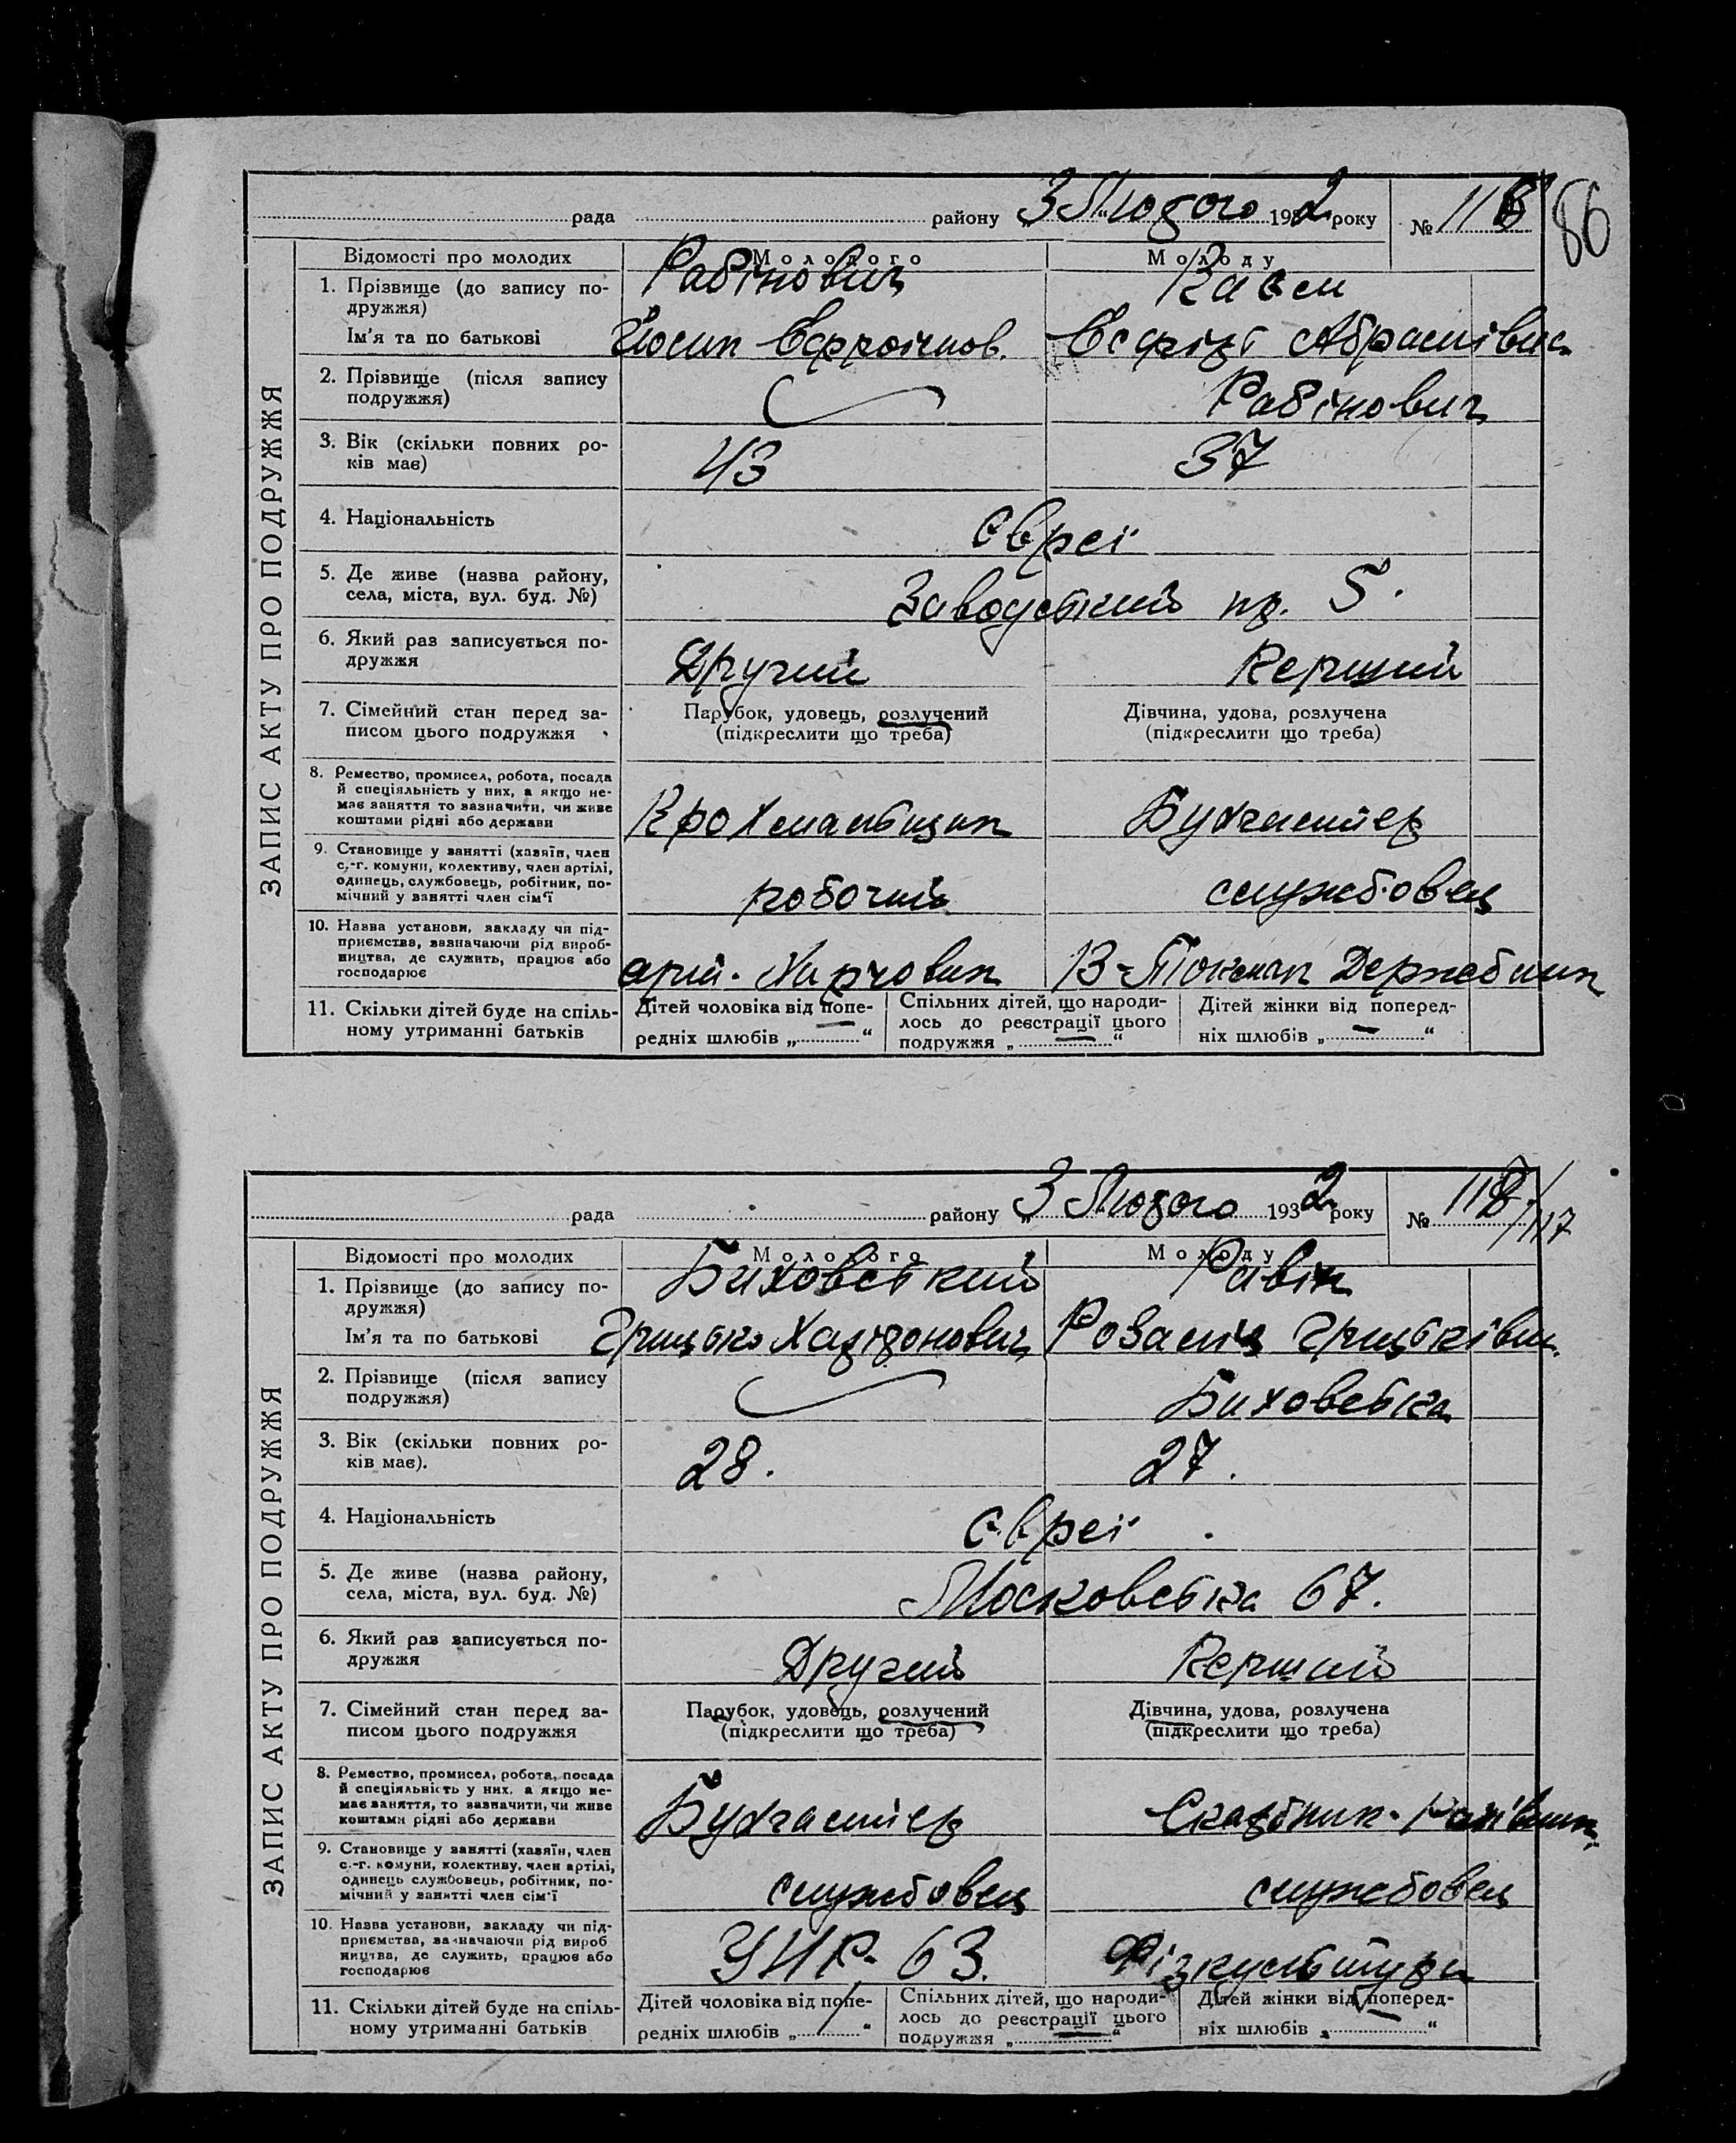 рада району „3“ Лютого 1932 року № 116
86
ЗАПИС АКТУ ПРО ПОДРУЖЖЯ
Відомості про молодих Молодого Молоду
1. Прізвище (до запису по-
дружжя) Рабінович
Ім'я та по батькові Йосип Абрамівна
2. Прізвище (після запису
подружжя) Рабінович
3. Вік (скільки повних ро-
ків має) 43 37
4. Національність євреї
5. Де живе (назва району,
села, міста, вул. буд. №) Заводський пр. 5.
6. Який раз записується по-
дружжя Другий Перший
7. Сімейний стан перед за-
писом цього подружжя
Парубок, удовець, розлучений Дівчина, удова, розлучена
(підкреслити що треба) (підкреслити що треба)
8. Ремество, промисел, робота, посада
й спеціяльність у них, а якщо не-
має заняття то зазначити, чи живе
коштами рідні або держави
Крохмальщик Бухгалтер
9. Становище у занятті (хазяїн, член
с.-г. комуни, колективу, член артілі,
одинець, службовець, робітник, по-
мічний у занятті член сім'ї
робочий службовец
10. Назва установи, закладу чи під-
приємства, зазначаючи рід вироб-
ництва, де служить, працює або
господарює
11. Скільки дітей буде на спіль-
ному утриманні батьків
Дітей чоловіка від попе-
редніх шлюбів „—“
Спільних дітей, що народи-
лось до реєстрації цього
подружжя „—“
Дітей жінки від поперед-
ніх шлюбів „—“
рада району „3“ Лютого 1932 року № 118/117
ЗАПИС АКТУ ПРО ПОДРУЖЖЯ
Відомості про молодих Молодого Молоду
1. Прізвище (до запису по-
дружжя) Биховський Равін
Ім'я та по батькові Грицько Розалія Грицьківн.
2. Прізвище (після запису
подружжя) Биховська
3. Вік (скільки повних ро-
ків має). 28. 27.
4. Національність євреї
5. Де живе (назва району,
села, міста, вул. буд. №) Московська 67.
6. Який раз записується по-
дружжя Другий Перший
7. Сімейний стан перед за-
писом цього подружжя
Парубок, удовець, розлучений Дівчина, удова, розлучена
(підкреслити що треба) (підкреслити що треба)
8. Ремество, промисел, робота, посада
й спеціяльність у них, а якщо не-
має заняття, то зазначити, чи живе
коштами рідні або держави
Бухгалтер
9. Становище у занятті (хазяїн, член
с.-г. комуни, колективу, член артілі,
одинець службовець, робітник, по-
мічний у занятті член сім'ї
службовец службовец
10. Назва установи, закладу чи під-
приємства, зазначаючи рід вироб
ництва, де служить, працює або
господарює
63. Фізкультури
11. Скільки дітей буде на спіль-
ному утриманні батьків
Дітей чоловіка від попе-
редніх шлюбів „—“
Спільних дітей, що народи-
лось до реєстрації цього
подружжя „—“
Дітей жінки від поперед-
ніх шлюбів „—“